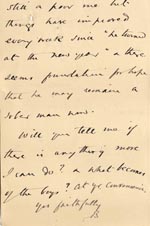 still a poor one but
things have improved
every week since "he turned
at the new year" & there
seems foundation for hope
that he may remain a
sober man now.
Will you tell me if
there is anything more
I can do? & what becomes
of the boys? At yr convenience
Yrs faithfully